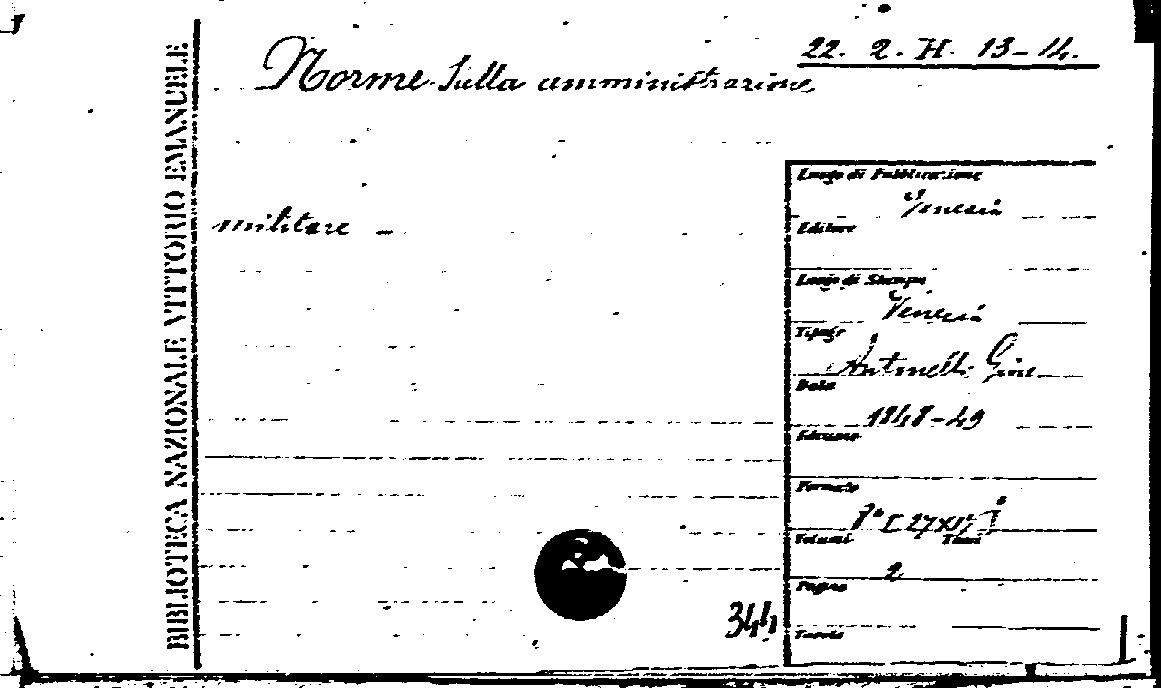 BIBLIOTECA NAZIONALE VITTORIO EMANUELE
22. 2. H. 13-14.
Norme Sulla amministrazione
militare -
Luogo di Pubblicazione
Venezia
Editore
Luogo di Stampa
Venezia
Tipogr
Antonelli
Data
1848-49
Edizione
Formato
8° [27x17]
Volumi Tomi
2
Pagine
Tavole
344